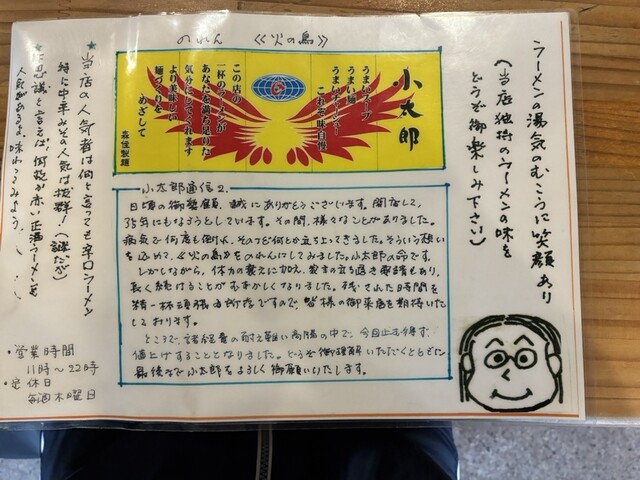 ラーメンの湯気のむこうに笑顔あり
(当店独特のラーメンの味を
どうぞ御楽しみ下さい)
のれん 《火の鳥》
小太郎
うまいスープ
うまい麺
うまいチャーシュー
これぞ味自慢
この店の
一杯のラーメンが
あなたを満ち足りた
気分にしてくれます
より美味しい
麺づくりを
めざして
森住製麺
★当店の人気者は何と言っても辛口ラーメン
特に中辛みその人気は抜群!(謎だが)
不思議と言えば、何故か赤い正油ラーメンも
人気があるよ。味わってみよう。
小太郎通信2.
日頃の御愛顧、誠にありがとうございます。開店して、
35年にもなろうとしています。その間、様々なことがありました。
病気で何度も倒れ、そのつど何とか立ち上ってきました。そういう想い
を込めて、《火の鳥》をのれんにしてみました。小太郎の命です。
しかしながら、体力の衰えに加え、家主の立ち退き要請もあり、
長く続けることがむずかしくなりました。残された時間を
精一杯頑張る所存ですので、皆様の御来店を期待いた
しております。
ところで、諸経費の耐え難い高騰の中で、今回止を得ず、
値上げすることとなりました。どうぞ御理解いただくとともに
最後まで小太郎をよろしく御願いいたします。
・営業時間
11時〜22時
・定休日
毎週木曜日